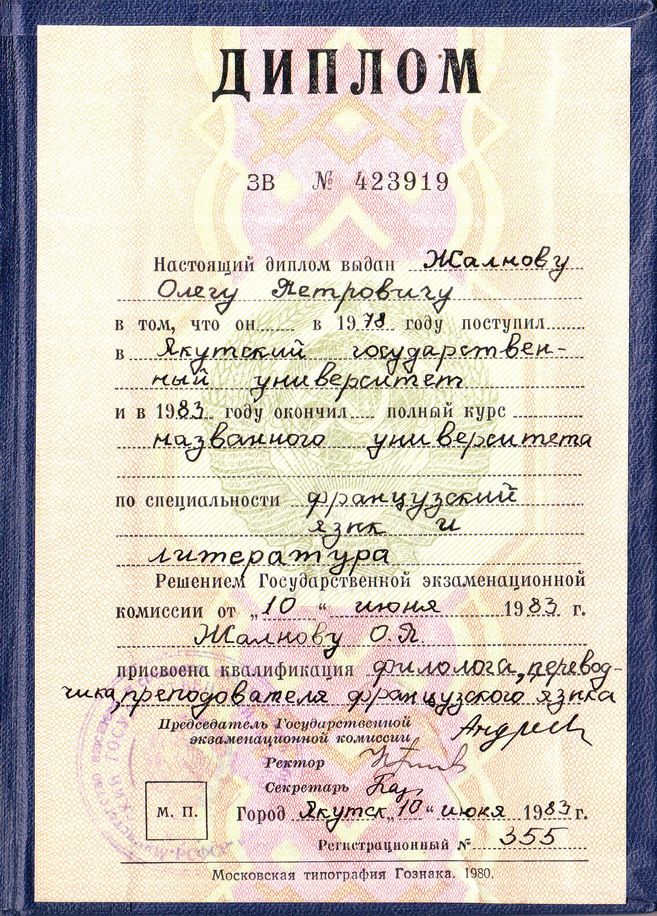 ДИПЛОМ
ЗВ № 423919
Настоящий диплом выдан Жалнову
Олегу Петровичу
в том, что он в 1978 году поступил
в Якутский государствен-
ный университет
и в 1983 году окончил полный курс
названного университета
по специальности французский
язык и
литература
Решением Государственной экзаменационной
комиссии от „10“ июня 1983 г.
Жалнову О.П.
присвоена квалификация филолога, перевод-
чика, преподователя французского языка
Председатель Государственной
экзаменационной комиссии
Ректор
Секретарь
М. П.
Город Якутск „10“ июня 1983 г.
Регистрационный № 355
Московская типография Гознака. 1980.